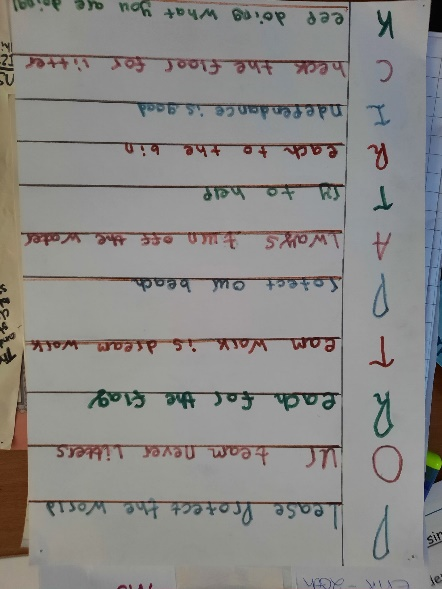 Please Protect the world
OUr team never Litters
Reach for the flag
Team work is dream work
Protect our beach
Always tun off the water
Try to help
Reach to the bin
Independance is good
Check the floor for litter
Keep doing what you are doing!